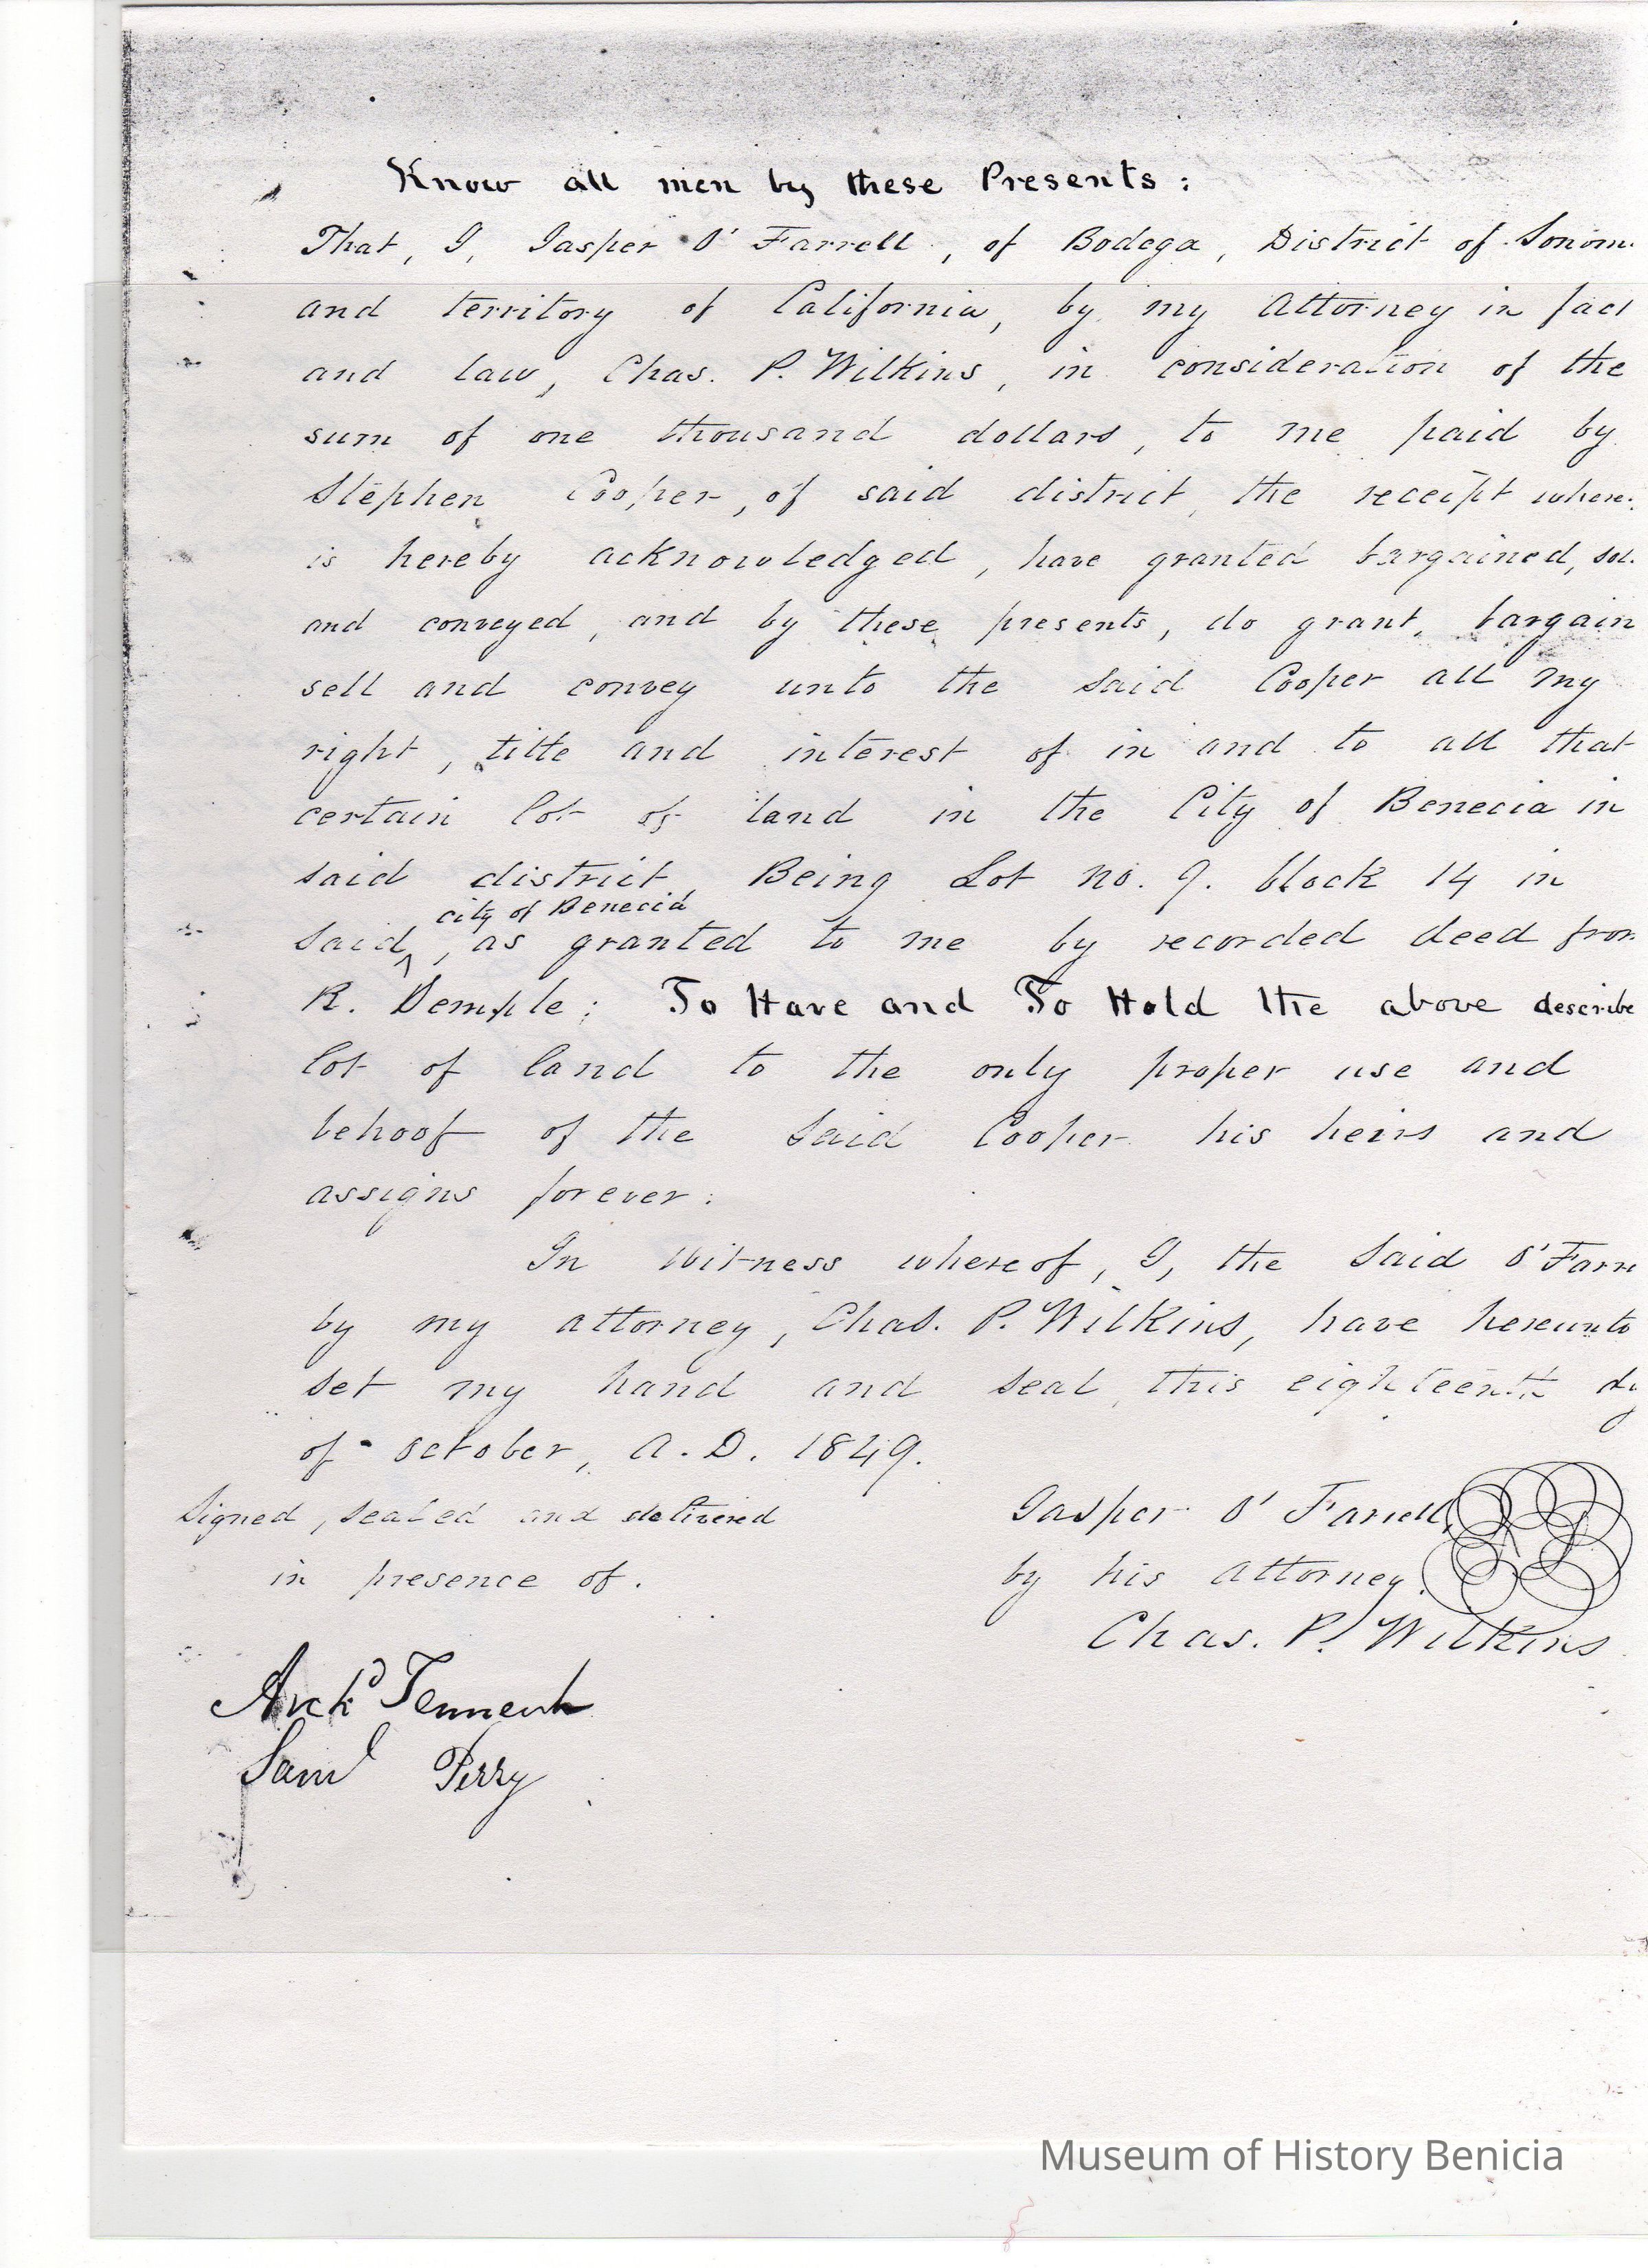 Know all men by these Presents:
That, I, Jasper O'Farrell, of Bodega, District of Sonom
and territory of California, by my Attorney in fact
and law, Chas. P. Wilkins, in consideration of the
sum of one thousand dollars, to me paid by
Stephen Cooper, of said district, the receipt where
is hereby acknowledged, have granted bargained, sol
and conveyed, and by these presents, do grant, bargain
sell and convey unto the said Cooper all my
right, title and interest of in and to all that
certain lot of land in the City of Benecia in
said district, Being Lot no. 9. block 14 in
city of Benecia
said, as granted to me by recorded deed from
R. Semple: To Have and To Hold the above describe
lot of land to the only proper use and
behoof of the said Cooper his heirs and
assigns forever:
In witness whereof, I, the said O'Farre
by my attorney, Chas. P. Wilkins, have hereunto
set my hand and seal, this eighteenth dy
of october, A.D. 1849.
Signed, sealed and delivered
in presence of.
Jasper O'Farrell,
by his attorney.
Chas. P. Wilkins
Archd Tennent
Saml Perry
Museum of History Benicia